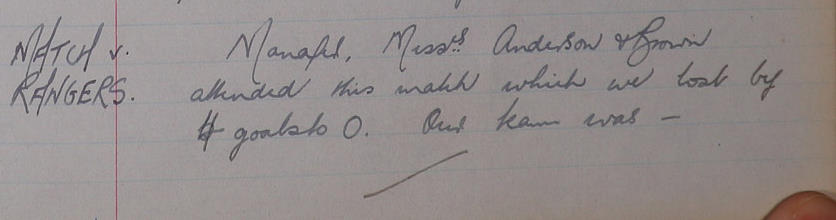 MATCH v.
RANGERS.
Manager, Messrs Anderson & Brown
attended this match which we lost by
4 goals to 0. Our team was —